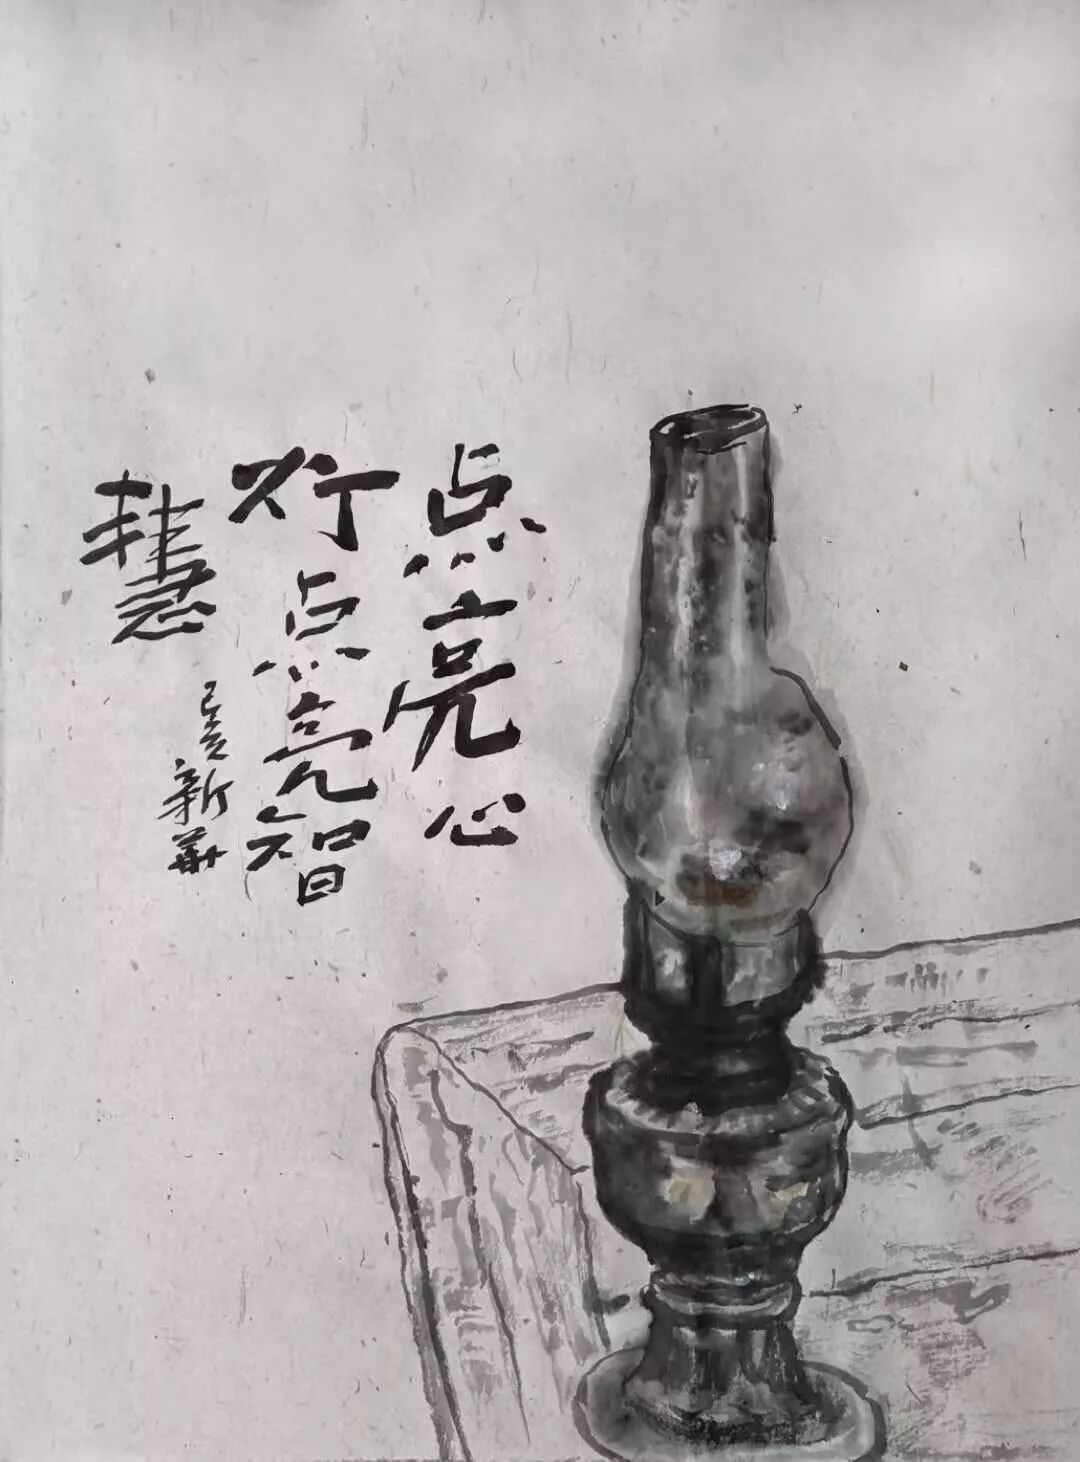 点亮心
灯点亮智
慧
己亥新華